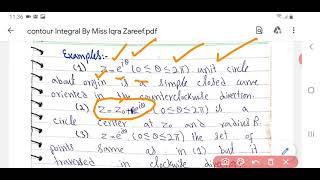 11:36
contour Integral By Miss Iqra Zareef.pdf
Examples:-
(1) z=e^{iθ} (0≤θ≤2π) unit circle
about origin is a simple closed curve
oriented in the counterclockwise direction.
(2) z=z₀+Re^{iθ} (0≤θ≤2π) is a
circle center at z₀ and radius R.
(3) z=e^{iθ} (0≤θ≤2π) the set of
points same as in (1) but it
traversed in clockwise